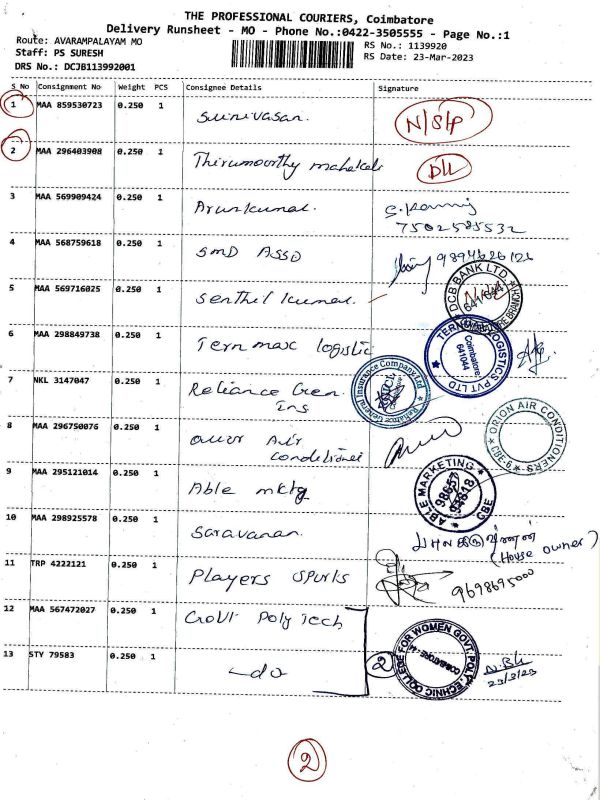 THE PROFESSIONAL COURIERS, Coimbatore
Delivery Runsheet - MO - Phone No.:0422-3505555 - Page No.:1
Route: AVARAMPALAYAM MO
RS No.: 1139920
Staff: PS SURESH
RS Date: 23-Mar-2023
DRS No.: DCJB113992001
S No Consignment No Weight PCS Consignee Details Signature
1 MAA 859530723 0.250 1 Srinivasan. N/S/P
2 MAA 296403908 0.250 1 Thirumoorthy D/L
3 MAA 569909424 0.250 1 Arunkumar.
7502585532
4 MAA 568759618 0.250 1 SMD ASSO 9894626126
5 MAA 569716025 0.250 1 Senthil kumar. DCB BANK LTD. 641044
6 MAA 298849738 0.250 1 Tern max logistic LOGISTICS PVT LTD Coimbatore 641044
7 NKL 3147047 0.250 1 Reliance Gen Reliance General Insurance Company Ltd
Ins
8 MAA 296750076 0.250 1 Air ORION AIR CONDITIONERS CBE-6
conditioner
9 MAA 295121014 0.250 1 Able mktg ABLE MARKETING CBE 98657 93818
10 MAA 298925578 0.250 1 Saravanan.
(House owner)
11 TRP 4222121 0.250 1 Players Spurks
9698695000
12 MAA 567472027 0.250 1 Govt Poly Tech
13 STY 79583 0.250 1 -do 2 COLLEGE FOR WOMEN GOVT. POLYTECHNIC COIMBATORE-44
23/3/23
2